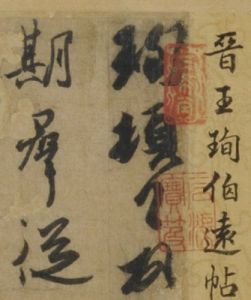 晉王珣伯遠帖
珣頓首頓
期羣從